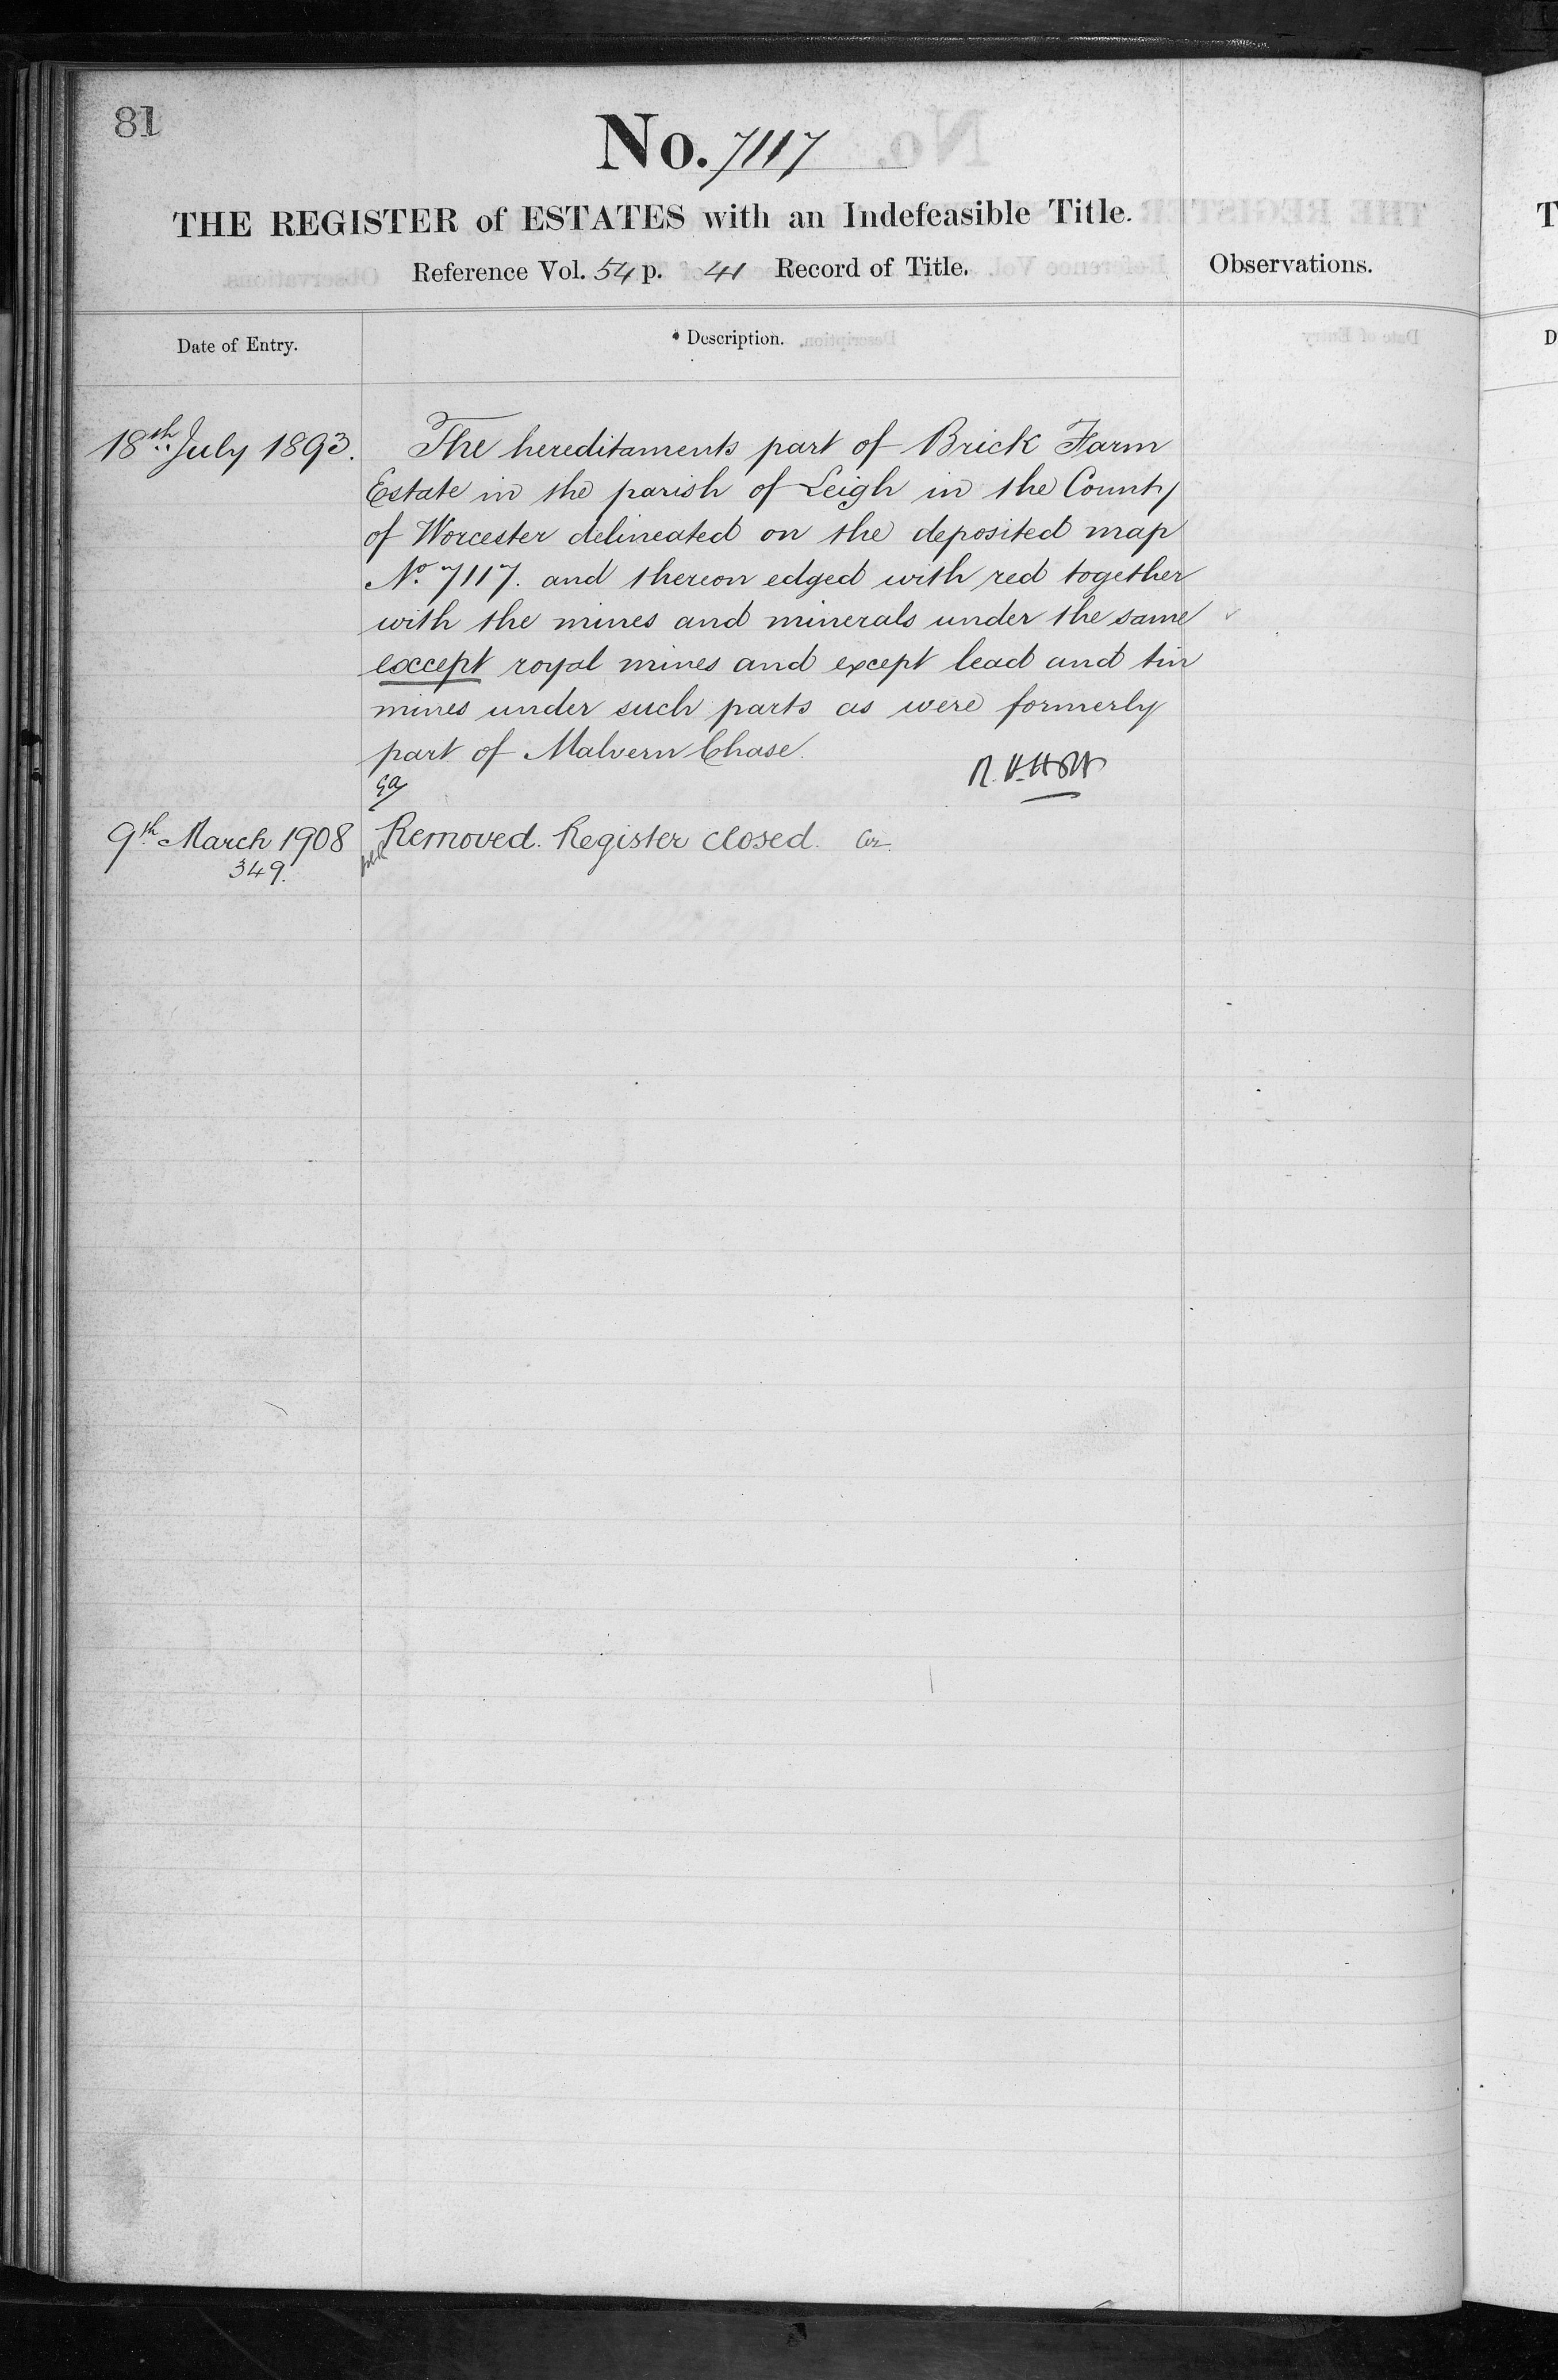 81
No. 7117
THE REGISTER of ESTATES with an Indefeasible Title.
Reference Vol. 54 p. 41 Record of Title.
Observations.
Date of Entry.
Description.
18th July 1893.
The hereditaments part of Brick Farm
Estate in the parish of Leigh in the County
of Worcester delineated on the deposited map
No. 7117. and thereon edged with red together
with the mines and minerals under the same
except royal mines and except lead and tin
mines under such parts as were formerly
part of Malvern Chase.
9th March 1908
349.
Removed. Register closed.
T
D